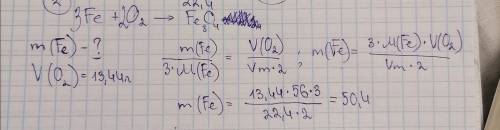 22,4
3Fe + 2O₂ → Fe₃O₄
m(Fe) - ?
V(O₂) = 13,44л
m(Fe)/3·M(Fe) = V(O₂)/Vm·2 ; m(Fe) = 3·M(Fe)·V(O₂)/Vm·2
m(Fe) = 13,44·56·3/22,4·2 = 50,4